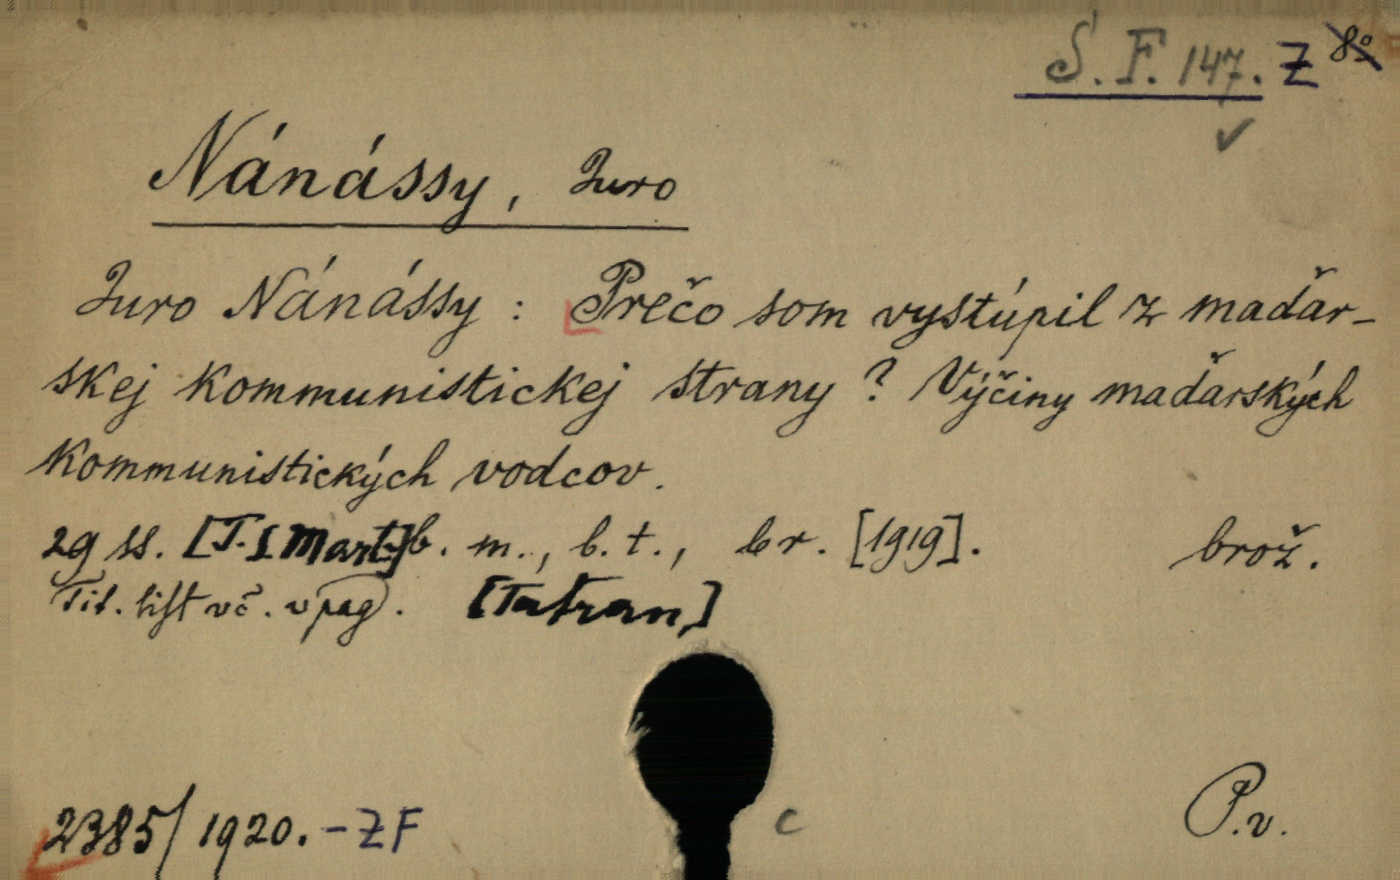 S. F. 147. Z 8º
Nánássy, Juro
Juro Nánássy : Prečo som vystúpil z maďar-
skej kommunistickej strany ? Výčiny maďarských
kommunistických vodcov.
29 ss. [T. S Mart.] b. m., b. t., b. r. [1919]. brož.
Tit. list vč. v pag. [Tatran,]
2385/1920. - ZF
c
P.v.